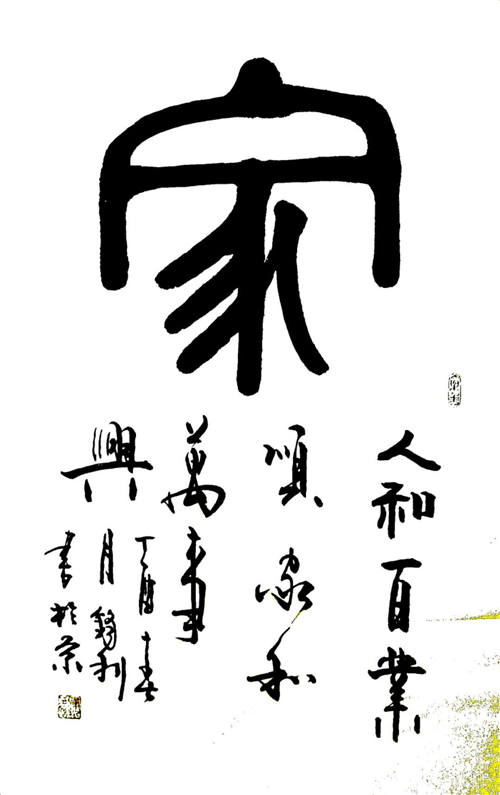 家
人和百業
順家和
萬事
興
丁酉春
月利
書於